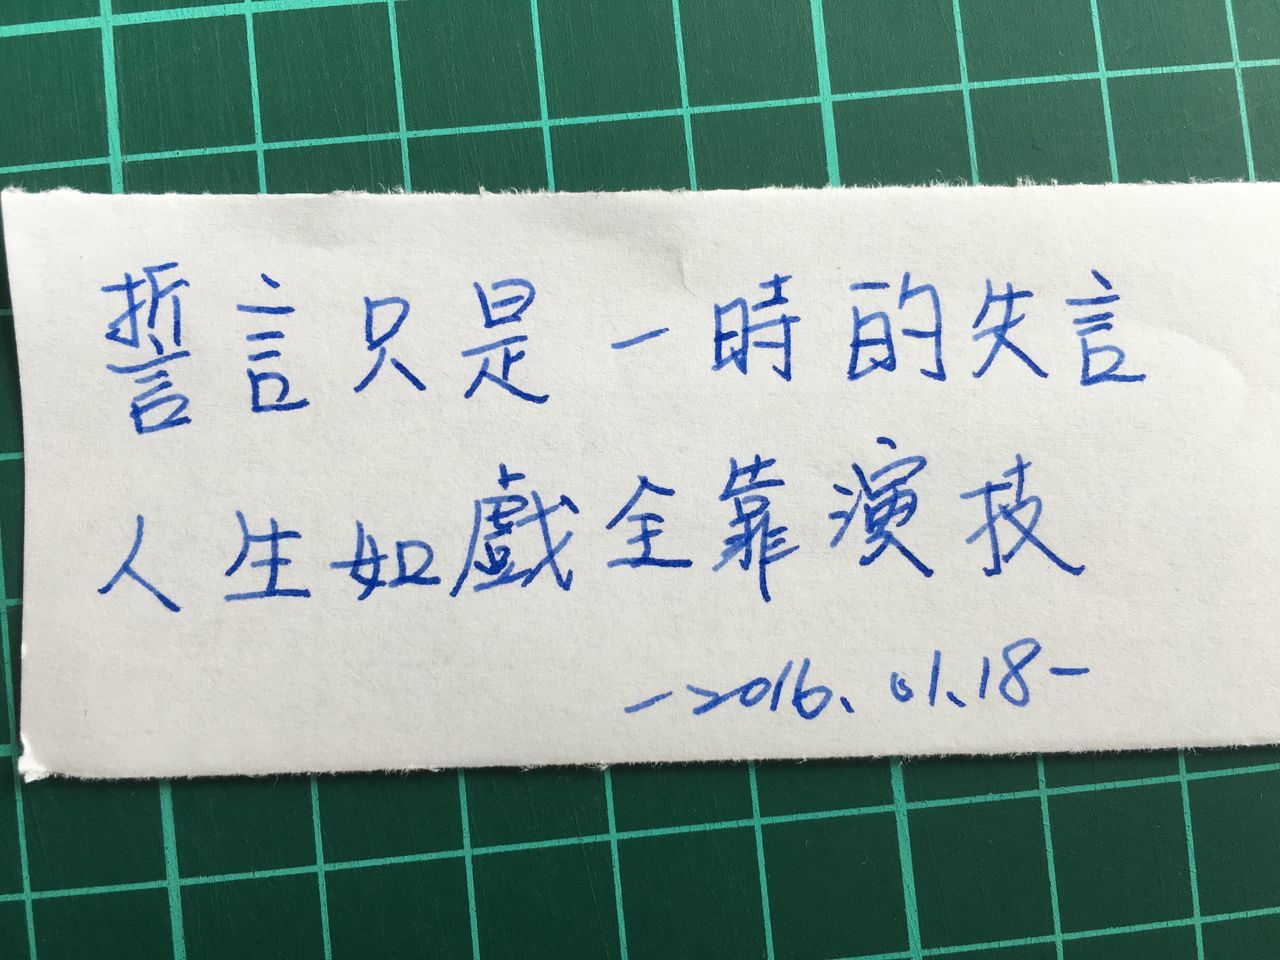 誓言只是一時的失言
人生如戲全靠演技
-2016.01.18-